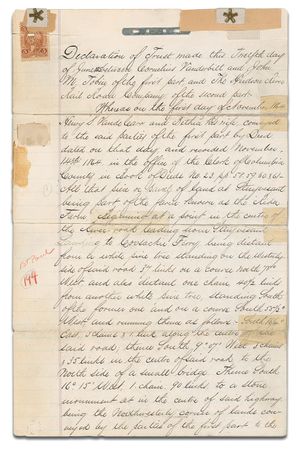 Declaration of Trust made this Twelfth day
of June between Cornelius Vanderbilt and John
M. Tobin of the first part and The Hudson River
Rail Road Company of the second part.
Whereas on the first day of November 1864
Henry S. Van de Carr and his wife conveyed
to the said parties of the first part by Deed
dated on that day and recorded November
14th 1864 in the office of the Clerk of Columbia
County in Book of Deeds No 23 pp 57.59.60.861.
All that piece or parcel of land at Stuyvesant
being part of the farm known as the
Farm Beginning at a point in the centre of
the River road leading from Stuyvesant
Landing to Coxsackie Ferry being distant
from a white pine tree standing on the westerly
side of said road 37 links on a course North
West and also distant one chain links
from another white pine tree, standing South
of the former one and on a course South
West and running thence as follows: South
East, 5 chains links along the centre of the
said road, thence South 9° West 2 chains
& 35 links in the centre of said road to the
North side of a small bridge Thence South
16° 15' West 1 chain 90 links to a stone
monument set in the centre of said highway
being the Northwesterly corner of lands con-
veyed by the parties of the first part to the